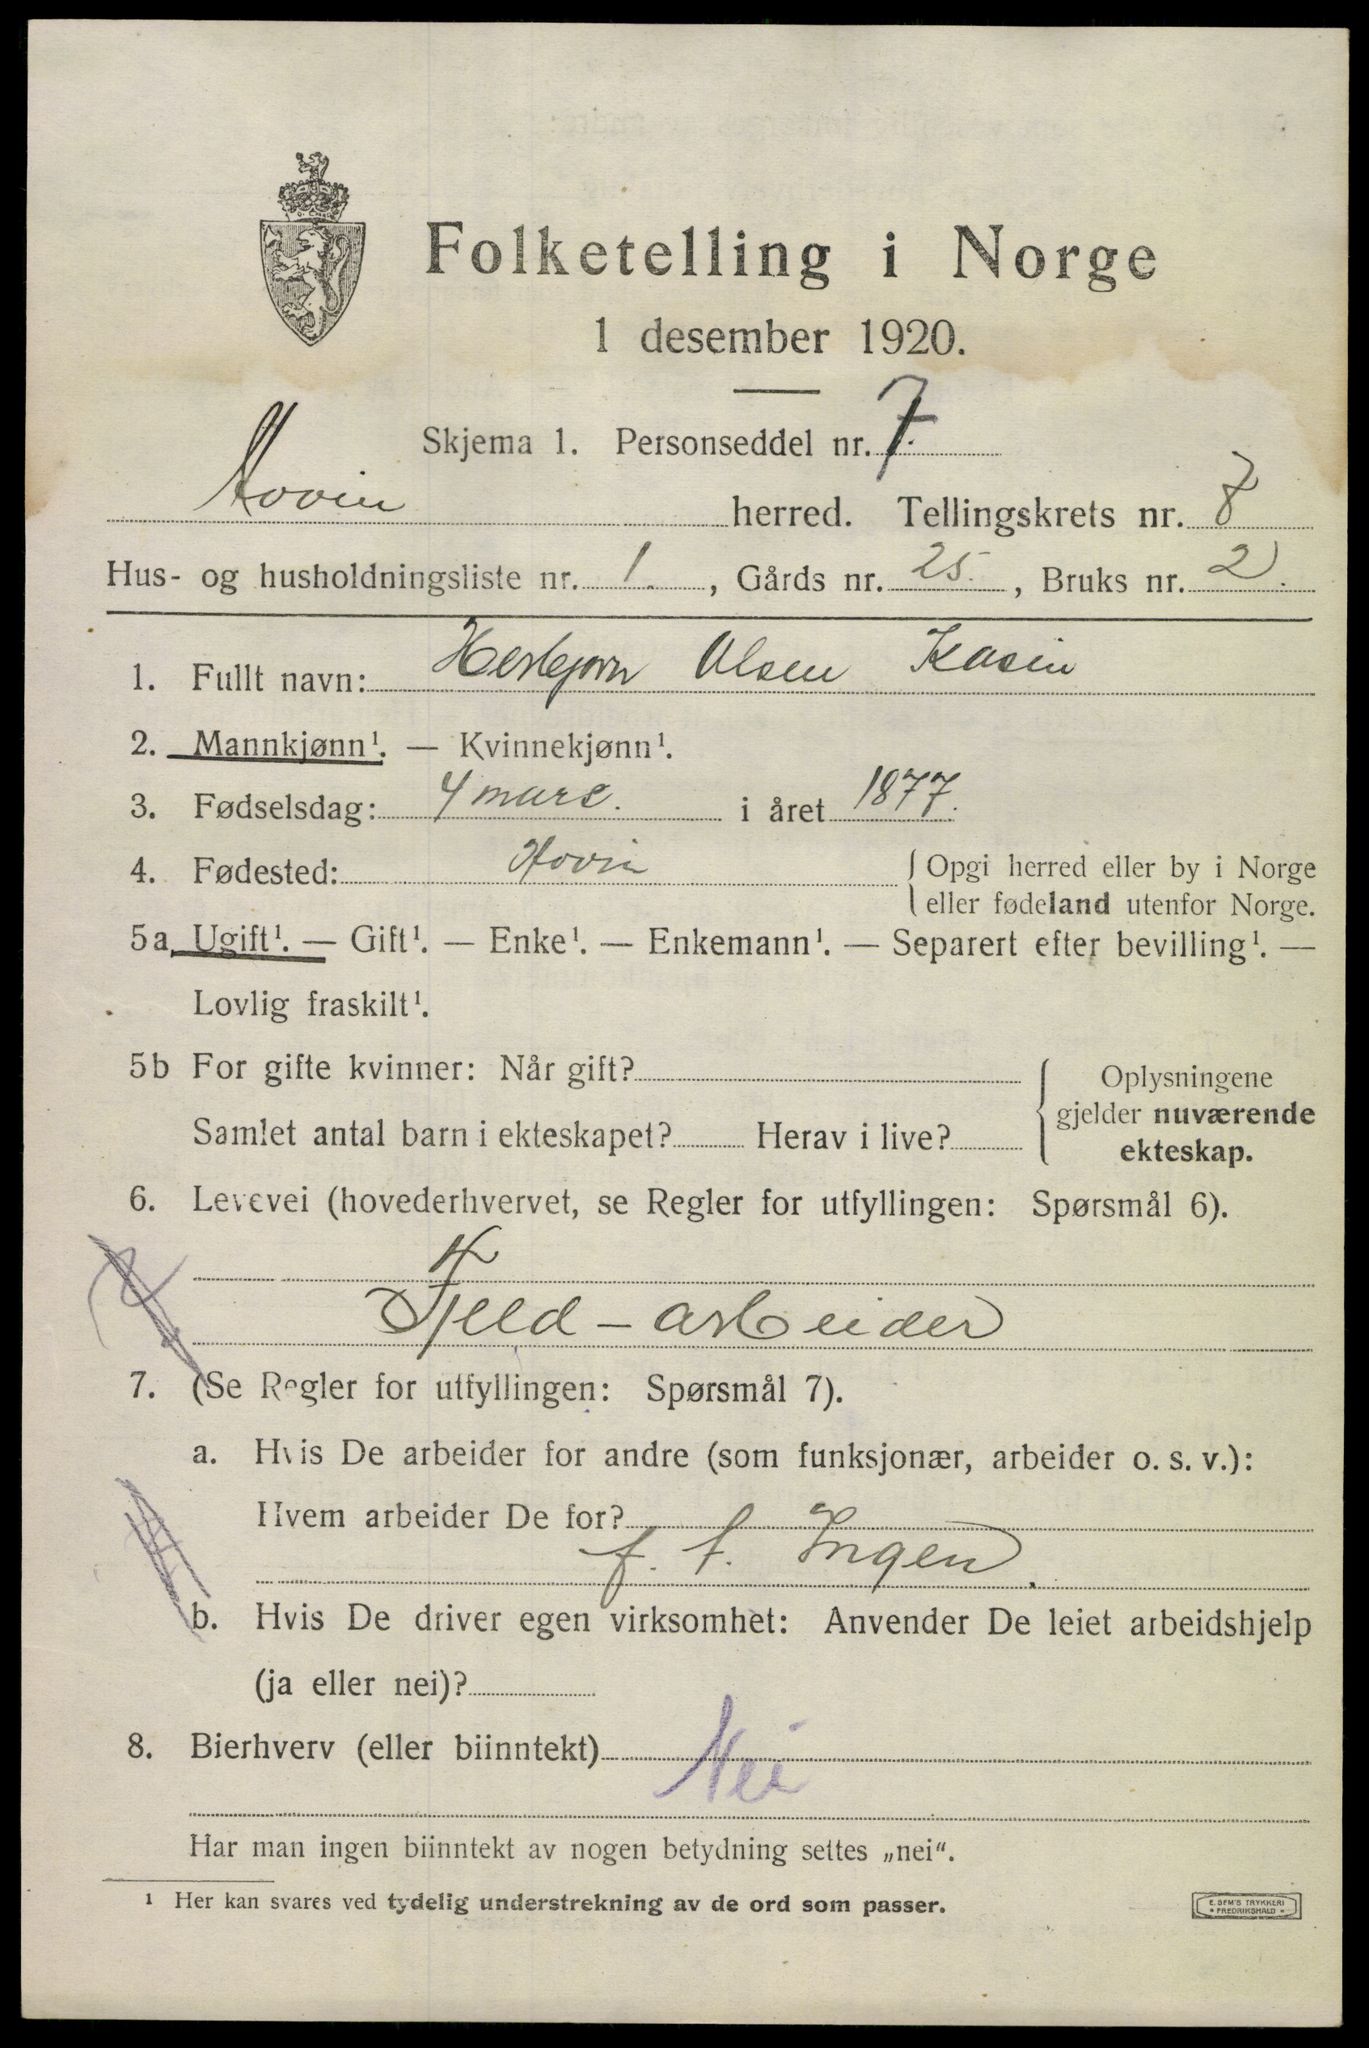 Folketelling i Norge
1 desember 1920.
Skjema 1. Personseddel nr. 7.
Hovin herred. Tellingskrets nr. 8
Hus- og husholdningsliste nr. 1. , Gårds nr. 25. , Bruks nr. 2.
1. Fullt navn: Herbjørn Olsen Kasin
2. Mannkjønn¹. — Kvinnekjønn¹.
3. Fødselsdag: 4 mars. i året 1877.
4. Fødested: Hovin { Opgi herred eller by i Norge
eller fødeland utenfor Norge.
5a Ugift¹. — Gift¹. — Enke¹. — Enkemann¹. — Separert efter bevilling¹. —
Lovlig fraskilt¹.
5b For gifte kvinner: Når gift?
Samlet antal barn i ekteskapet? Herav i live?
Oplysningene
gjelder nuværende
ekteskap.
6. Levevei (hovederhvervet, se Regler for utfyllingen: Spørsmål 6).
Fjeld-arbeider
7. (Se Regler for utfyllingen: Spørsmål 7).
a. Hvis De arbeider for andre (som funksjonær, arbeider o. s. v.):
Hvem arbeider De for?
f. t. Ingen.
b. Hvis De driver egen virksomhet: Anvender De leiet arbeidshjelp
(ja eller nei)?
8. Bierhverv (eller biinntekt) Nei
Har man ingen biinntekt av nogen betydning settes „nei“.
¹ Her kan svares ved tydelig understrekning av de ord som passer.
E. SEM'S TRYKKERI
* FREDRIKSHALD *